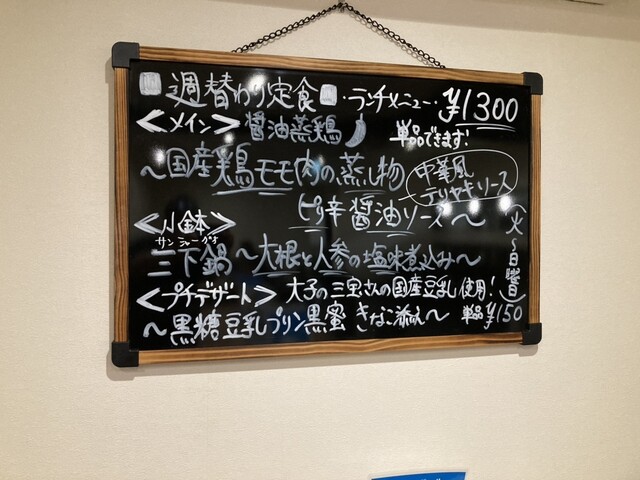 週替わり定食 ・ランチメニュー・ ¥1300
<メイン> 醤油蒸鶏 単品できます!
〜国産鶏モモ肉の蒸し物
中華風
テリヤキソース
ピリ辛醤油ソース〜
<小鉢>
サンシャーグオ
三下鍋〜大根と人参の塩味煮込み〜
(火〜日曜日)
<プチデザート> 大子の三宝さんの国産豆乳使用!
〜黒糖豆乳プリン黒蜜きなこ添え〜 単品¥150